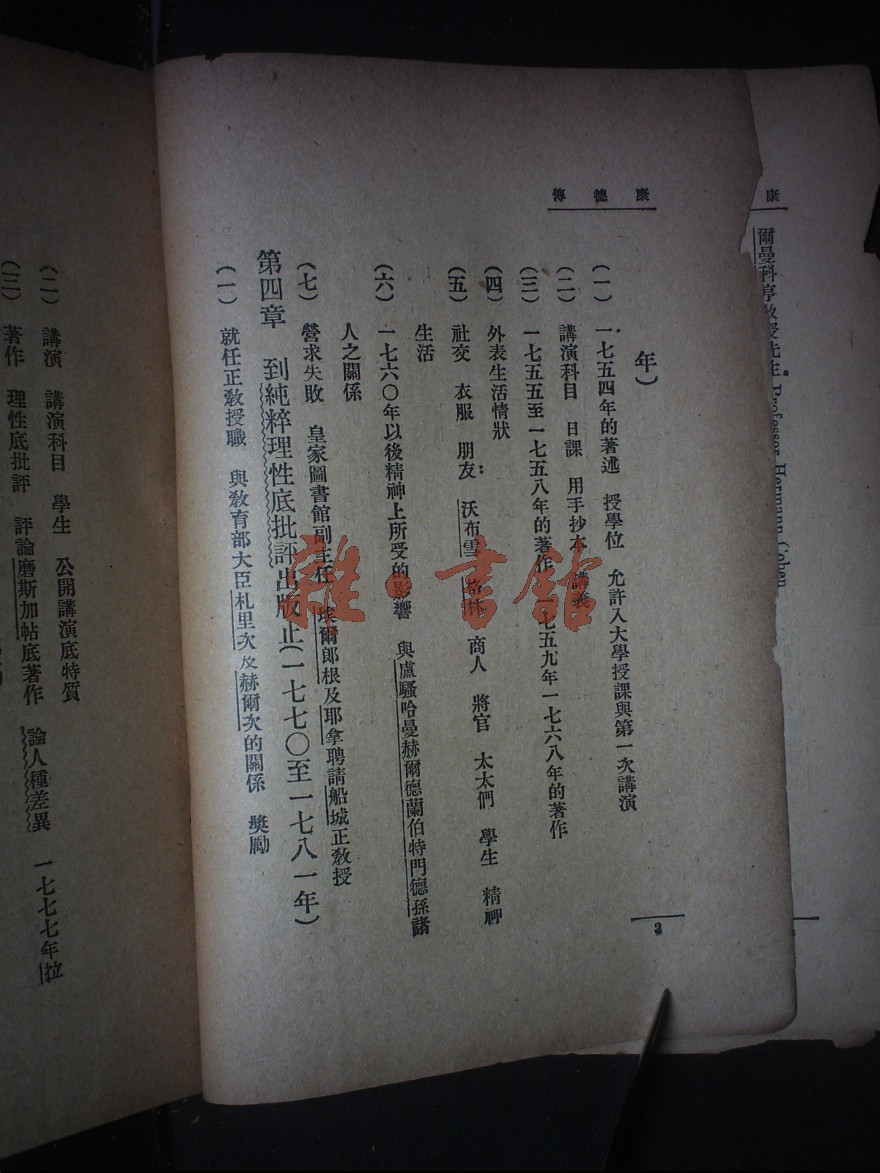 康德傳
康
爾曼科亨教授先生 Professor Hermann Cohen
年）
（一） 一七五四年的著述 授學位 允許入大學授課與第一次講演
（二） 講演科目 日課 用手抄本 講義
（三） 一七五五至一七五八年的著作 一七五九年一七六八年的著作
（四） 外表生活情狀
（五） 社交 衣服 朋友：沃布雪 格林 商人 將官 太太們 學生 精神
生活
（六） 一七六〇年以後精神上所受的影響 與盧騷哈曼赫爾德蘭伯特門德孫諸
人之關係
（七） 營求失敗 皇家圖書館副主任 埃爾郎根及耶拿聘請 船城正教授
第四章 到純粹理性底批評出版止（一七七〇至一七八一年）
（一） 就任正教授職 與教育部大臣札里次及赫爾次的關係 獎勵
2
（二） 講演 講演科目 學生 公開講演底特質
（三） 著作 理性底批評 評論磨斯加帖底著作 論人種差異 一七七七年拉
雜·書館